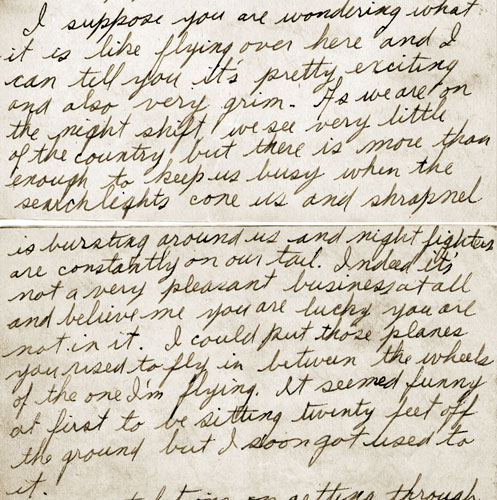 I suppose you are wondering what
it is like flying over here and I
can tell you it's pretty exciting
and also very grim. As we are on
the night shift we see very little
of the country but there is more than
enough to keep us busy when the
searchlights cone us and shrapnel
is bursting around us and night fighters
are constantly on our tail. Indeed it's
not a very pleasant business at all
and believe me you are lucky you are
not in it. I could put those planes
you used to fly in between the wheels
of the one I'm flying. It seemed funny
at first to be sitting twenty feet off
the ground but I soon got used to
it.
on getting through